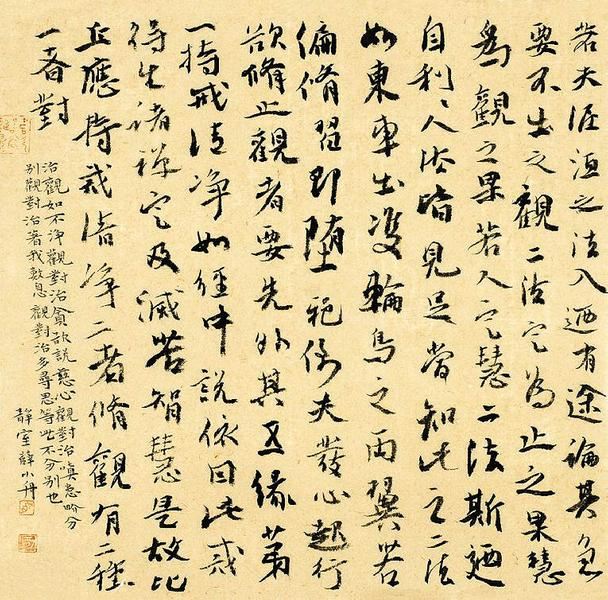 若夫涅洹之法入迺有途論其急
要不出之觀二法定為止之果慧
為觀之果若人定慧二法斯迺
自利人法皆見足當知此之二法
如東車出雙輪鳥之兩翼若
偏脩習即墮邪倒夫發心起行
欲脩止觀者要先外其五緣第
一持戒清淨如經中說依因此戒
得生諸禪定及滅苦智慧是故比
丘應持戒清淨二者脩觀有二種
一者對
治觀如不淨觀對治貪欲說慈心觀對治嗔恚略分
別觀對治著我數息觀對治多尋思等此不分別也
靜室薛小舟